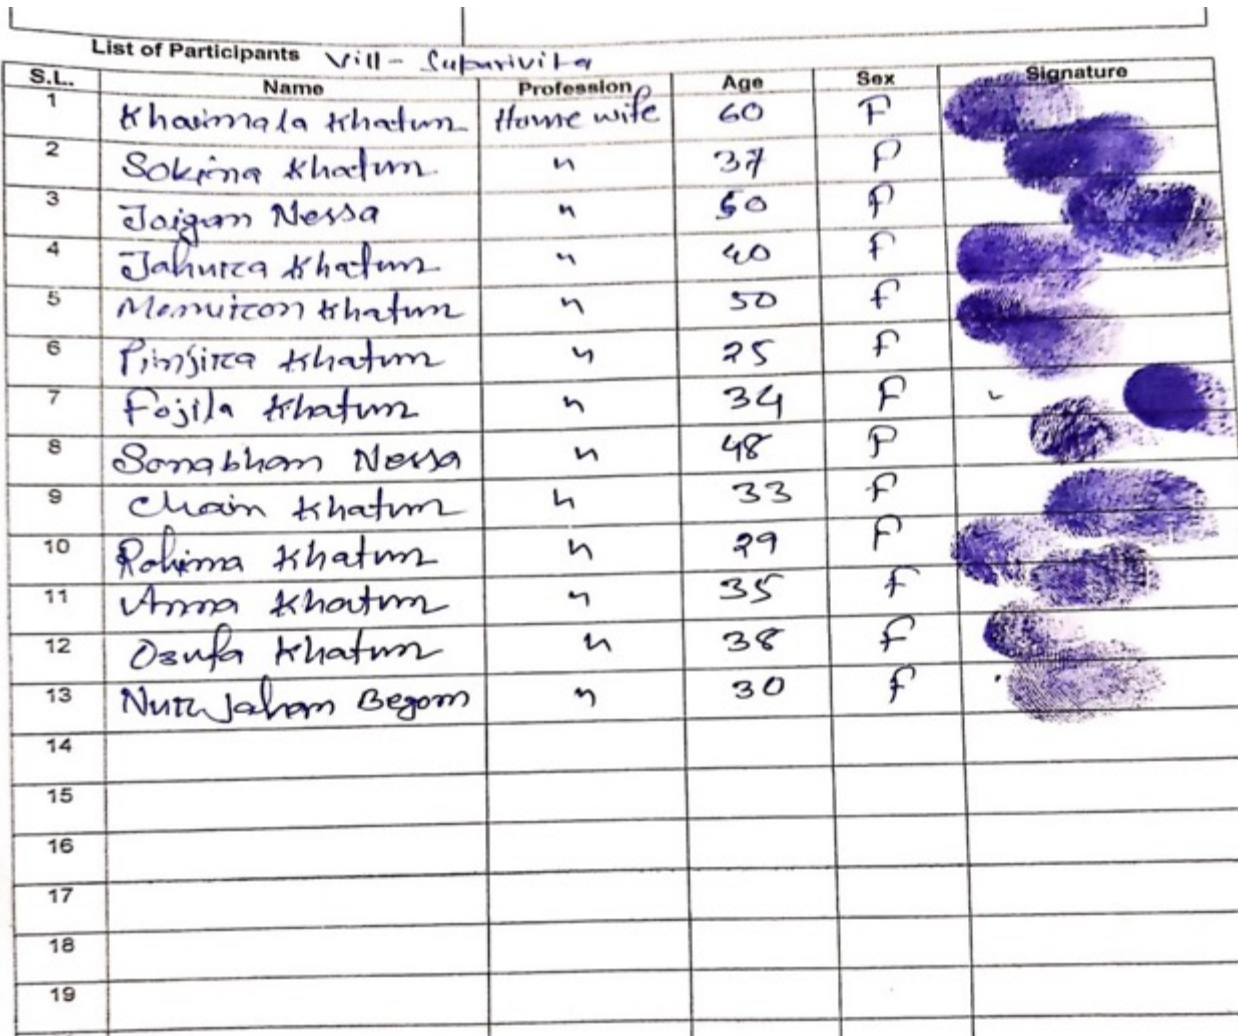 List of Participants Vill - Supurivita
S.L. Name Profession Age Sex Signature
1 Khaimala Khatun Home wife 60 F
2 Sokina Khatun " 37 F
3 Joigun Nessa " 50 F
4 Jahura Khatun " 40 F
5 Monuron Khatun " 50 F
6 Pinjira Khatun " 25 F
7 Fojila Khatun " 34 F
8 Sonabhan Nessa " 48 F
9 Chain Khatun " 33 F
10 Rohima Khatun " 29 F
11 Anna Khatun " 35 F
12 Osufa Khatun " 38 F
13 Nur Jahan Begom " 30 F
14
15
16
17
18
19